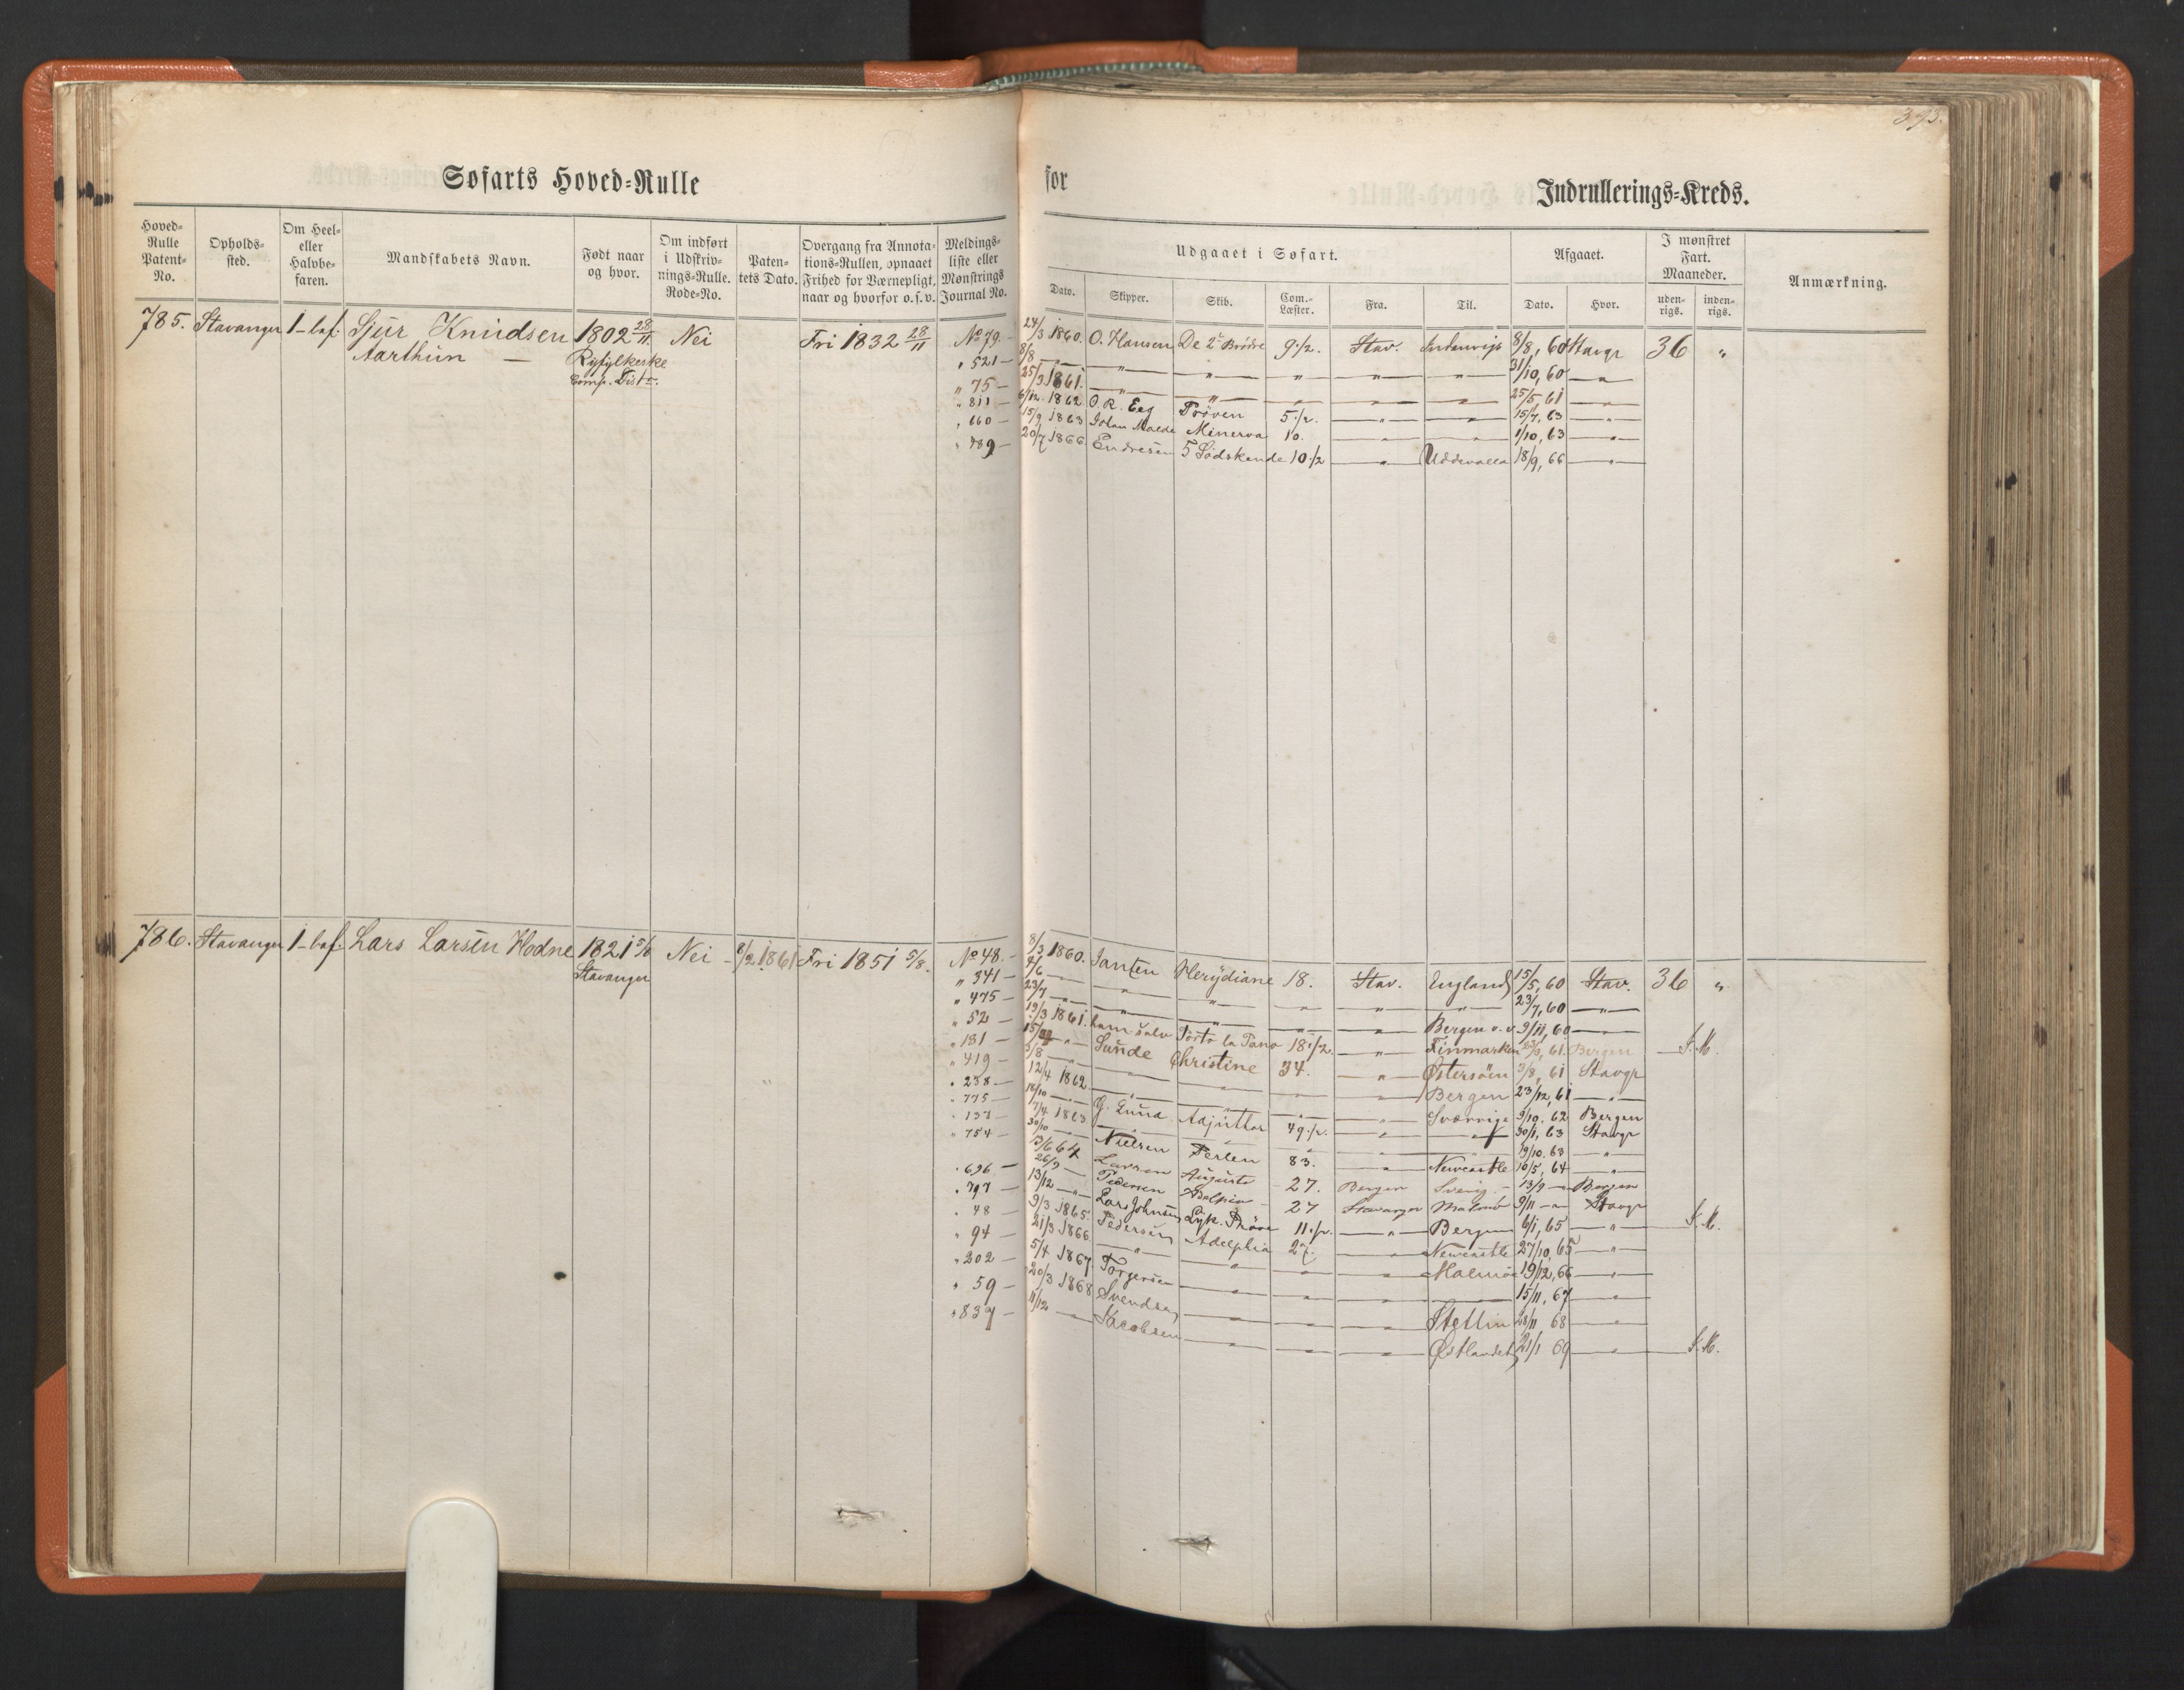 393.
Søfarts Hoved-Rulle for Indrullerings-Kreds.
Hoved-Rulle Patent-No. Opholds-sted. Om Heel- eller Halvbe-faren. Mandskabets Navn. Født naar og hvor. Om indført i Udskriv-nings-Rulle. Rode-No. Paten-tets Dato. Overgang fra Annota-tions-Rullen, opnaaet Frihed for Værnepligt, naar og hvorfor o.s.v. Meldings-liste eller Mønstrings Journal No.
Udgaaet i Søfart. Afgaaet. I mønstret Fart. Maaneder. Anmærkning.
Dato. Skipper. Skib. Com.-Læster. Fra. Til. Dato. Hvor. uden-rigs. inden-rigs.
785. Stavanger 1-bef. Sjur Knudsen 1802 28/11 Nei Fri 1832 28/11 No 79.- 24/3 1860. O. Hansen De 2 Brødre 9 1/2. Stav. Indenrigs 8/8, 60 Stavgr 36 "
Aarthun — Ryfylkeske
Comp. Distr.
" 521 — 8/8 — " — " — " " " — " — 31/10, 60 — " —
" 75 — 25/3 1861. — " — " — " — " — " — 25/5 61 — " —
" 811 — 6/12. 1862 O. R. Eeg Prøven 5 1/2. — " — " — 15/7, 63 — " —
" 660 — 15/9 1863 Johan Malde Minerva 10. — " — " — 1/10, 63 — " —
" 489 — 20/7 1866 Endresen 5 Sødskende 10 1/2 — " — Uddevalla 18/9, 66 — " —
786. Stavanger 1-bef. Lars Larsen Hodne 1821 5/8 Nei - 8/2 1861 Fri 1851 5/8. No 48.- 8/3 1860. Jansen Merydiane 18. Stav. England 15/5, 60 Stav. 36 "
Stavanger
" 341 — 4/6 — " — " — " — " — " — 23/7, 60 — " —
" 475 — 23/7 — " — " — " — " — Bergen 9/11, 60 — " —
" 52 — 19/3 1861. 18 1/2. — " — Finmarken 61. Bergen — S.M.
" 181 — Sunde Christine 34. — " — Østersøen 3/8, 61 Stavgr
" 419 — 3/8 — " — " — " — " — Bergen 23/12, 61 — " —
" 238 — 12/4 1862. — " — " — " — " — Sværrige 9/10. 62 Bergen
" 775 — 18/10 — G. Lund Adjuttor 49 1/2. — " — " — 30/1, 63 Stavgr
" 137 — 7/4 1863 — " — " — " — " — " — 19/10. 63 — " —
" 754 — 30/10 — Nielsen Perlen 83. — " — Newcastle 10/5, 64 — " —
13/6 64 Larsen Augusta 27. Bergen Sverig — 13/9 — Bergen
" 696 — 26/9 — Pedersen Adelphia 27 Stavanger 9/11 — Stavgr
" 797 — 13/12 — Lars Johnsen 11 1/2. — " — Bergen 6/1, 65 — " — S.M.
" 48 — 9/3 1865. Pedersen Adelphia 27. — " — Newcastle 27/10, 65 — " —
" 94 — 21/3 1866. — " — " — " — " — Malmøe 19/12, 66 — " —
" 202 — 5/4 1867. Torgersen — " — " — " — 15/11, 67 — " —
" 59 — 20/3 1868 Svendsen — " — " — " — Stettin 28/11 68 — " —
" 839 — 11/12 — Jacobsen — " — " — " — Østlandet 21/1 69 — " — S.M.